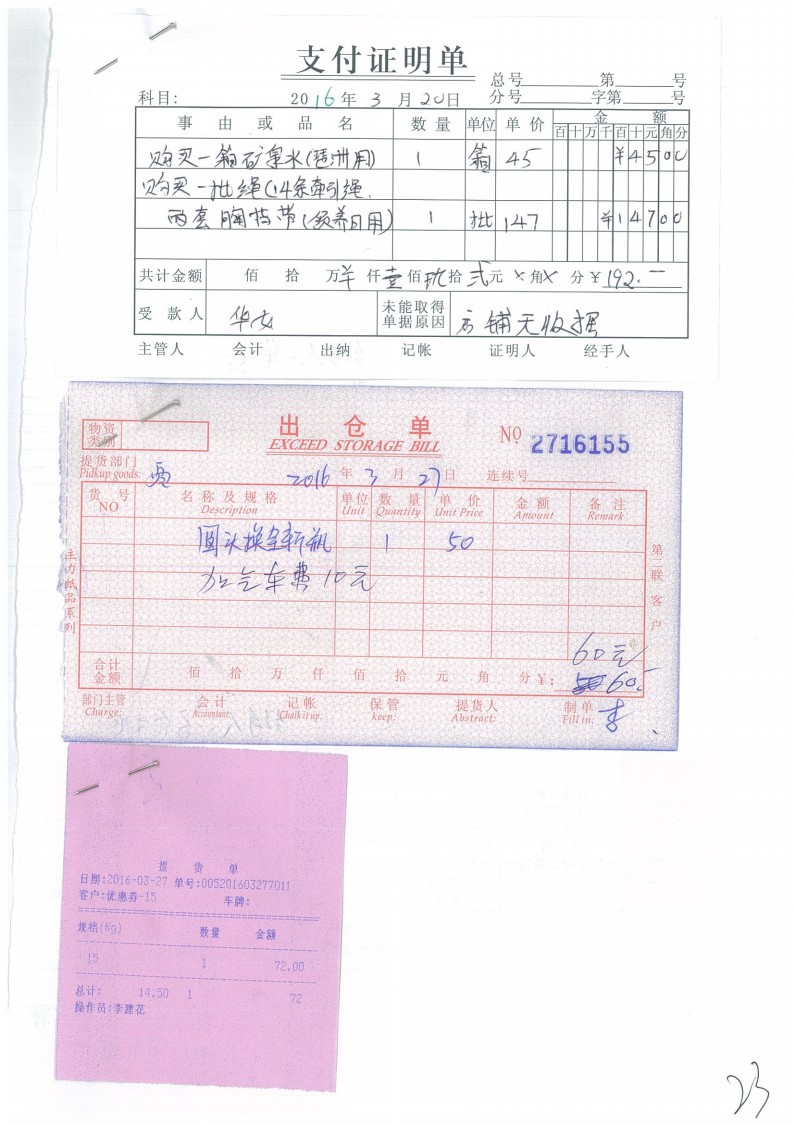 支付证明单
总号 第 号
科目: 2016年3月20日 分号 字第 号
事由或品名 数量 单位 单价 金额
百十万千百十元角分
购买一箱矿泉水(琶洲用) 1 箱 45 ¥4500
购买一批绳(14条牵引绳.
两套胸背带(领养日用) 1 批 147 ¥14700
共计金额 佰 拾 万 仟壹佰玖拾贰元×角×分¥192.—
受款人 华女 未能取得单据原因 店铺无收据
主管人 会计 出纳 记帐 证明人 经手人
出仓单
EXCEED STORAGE BILL
№ 2716155
物资类别
提货部门
Pidkup goods:
2016年3月27日 连续号
货号 名称及规格 单位 数量 单价 金额 备注
NO Description Unit Quantity Unit Price Amount Remark
圆头换全新瓶 1 50
加气车费10元
60元
合计金额 佰 拾 万 仟 佰 拾 元 角 分¥: 60.-
部门主管 会计 记帐 保管 提货人 制单
Charge: Accountant: Chalk it up: keep: Abstract: Fill in: 李
主力纸品系列
第二联客户
提货单
日期:2016-03-27 单号:005201603277011
客户:优惠券-15 车牌:
规格(Kg) 数量 金额
15 1 72.00
总计: 14.50 1 72
操作员:李建花
23